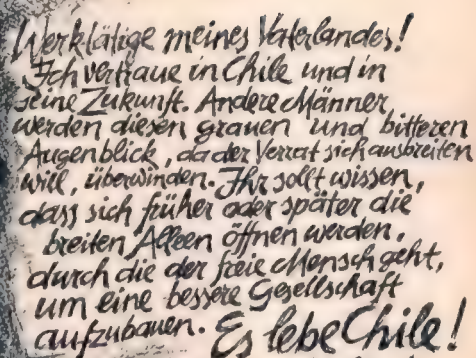 Werktätige meines Vaterlandes!
Ich vertraue in Chile und in
seine Zukunft. Andere Männer
werden diesen grauen und bitteren
Augenblick, da der Verrat sich ausbreiten
will, überwinden. Ihr sollt wissen,
dass sich früher oder später die
breiten Alleen öffnen werden,
durch die der freie Mensch geht,
um eine bessere Gesellschaft
aufzubauen. Es lebe Chile!